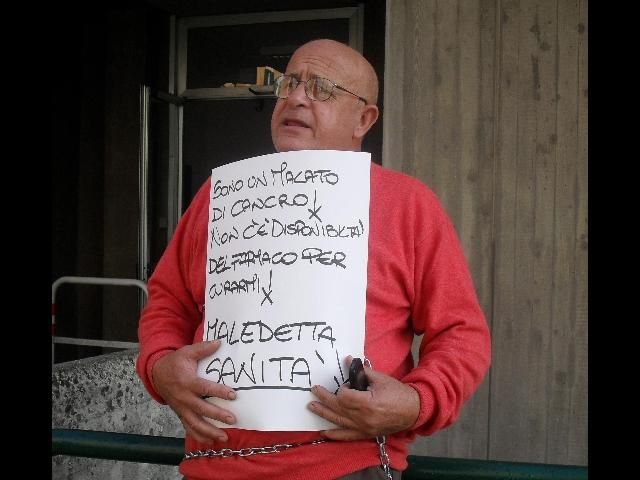 SONO UN MALATO
DI CANCRO!
NON C'È DISPONIBILTA'
DEL FARMACO PER
CURARMI!
MALEDETTA
SANITA'!